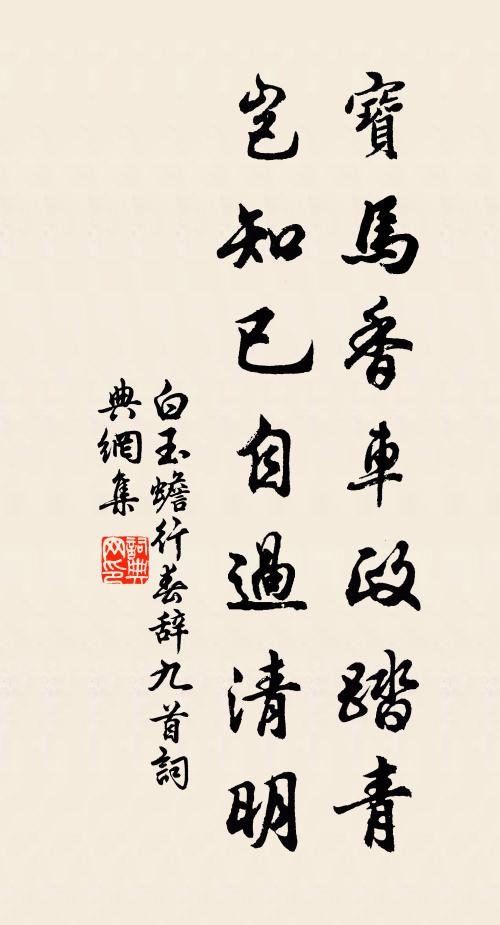 寶馬香車政踏青
豈知已自過清明
白玉蟾行春辞九首詞
典網集
詞典
网印